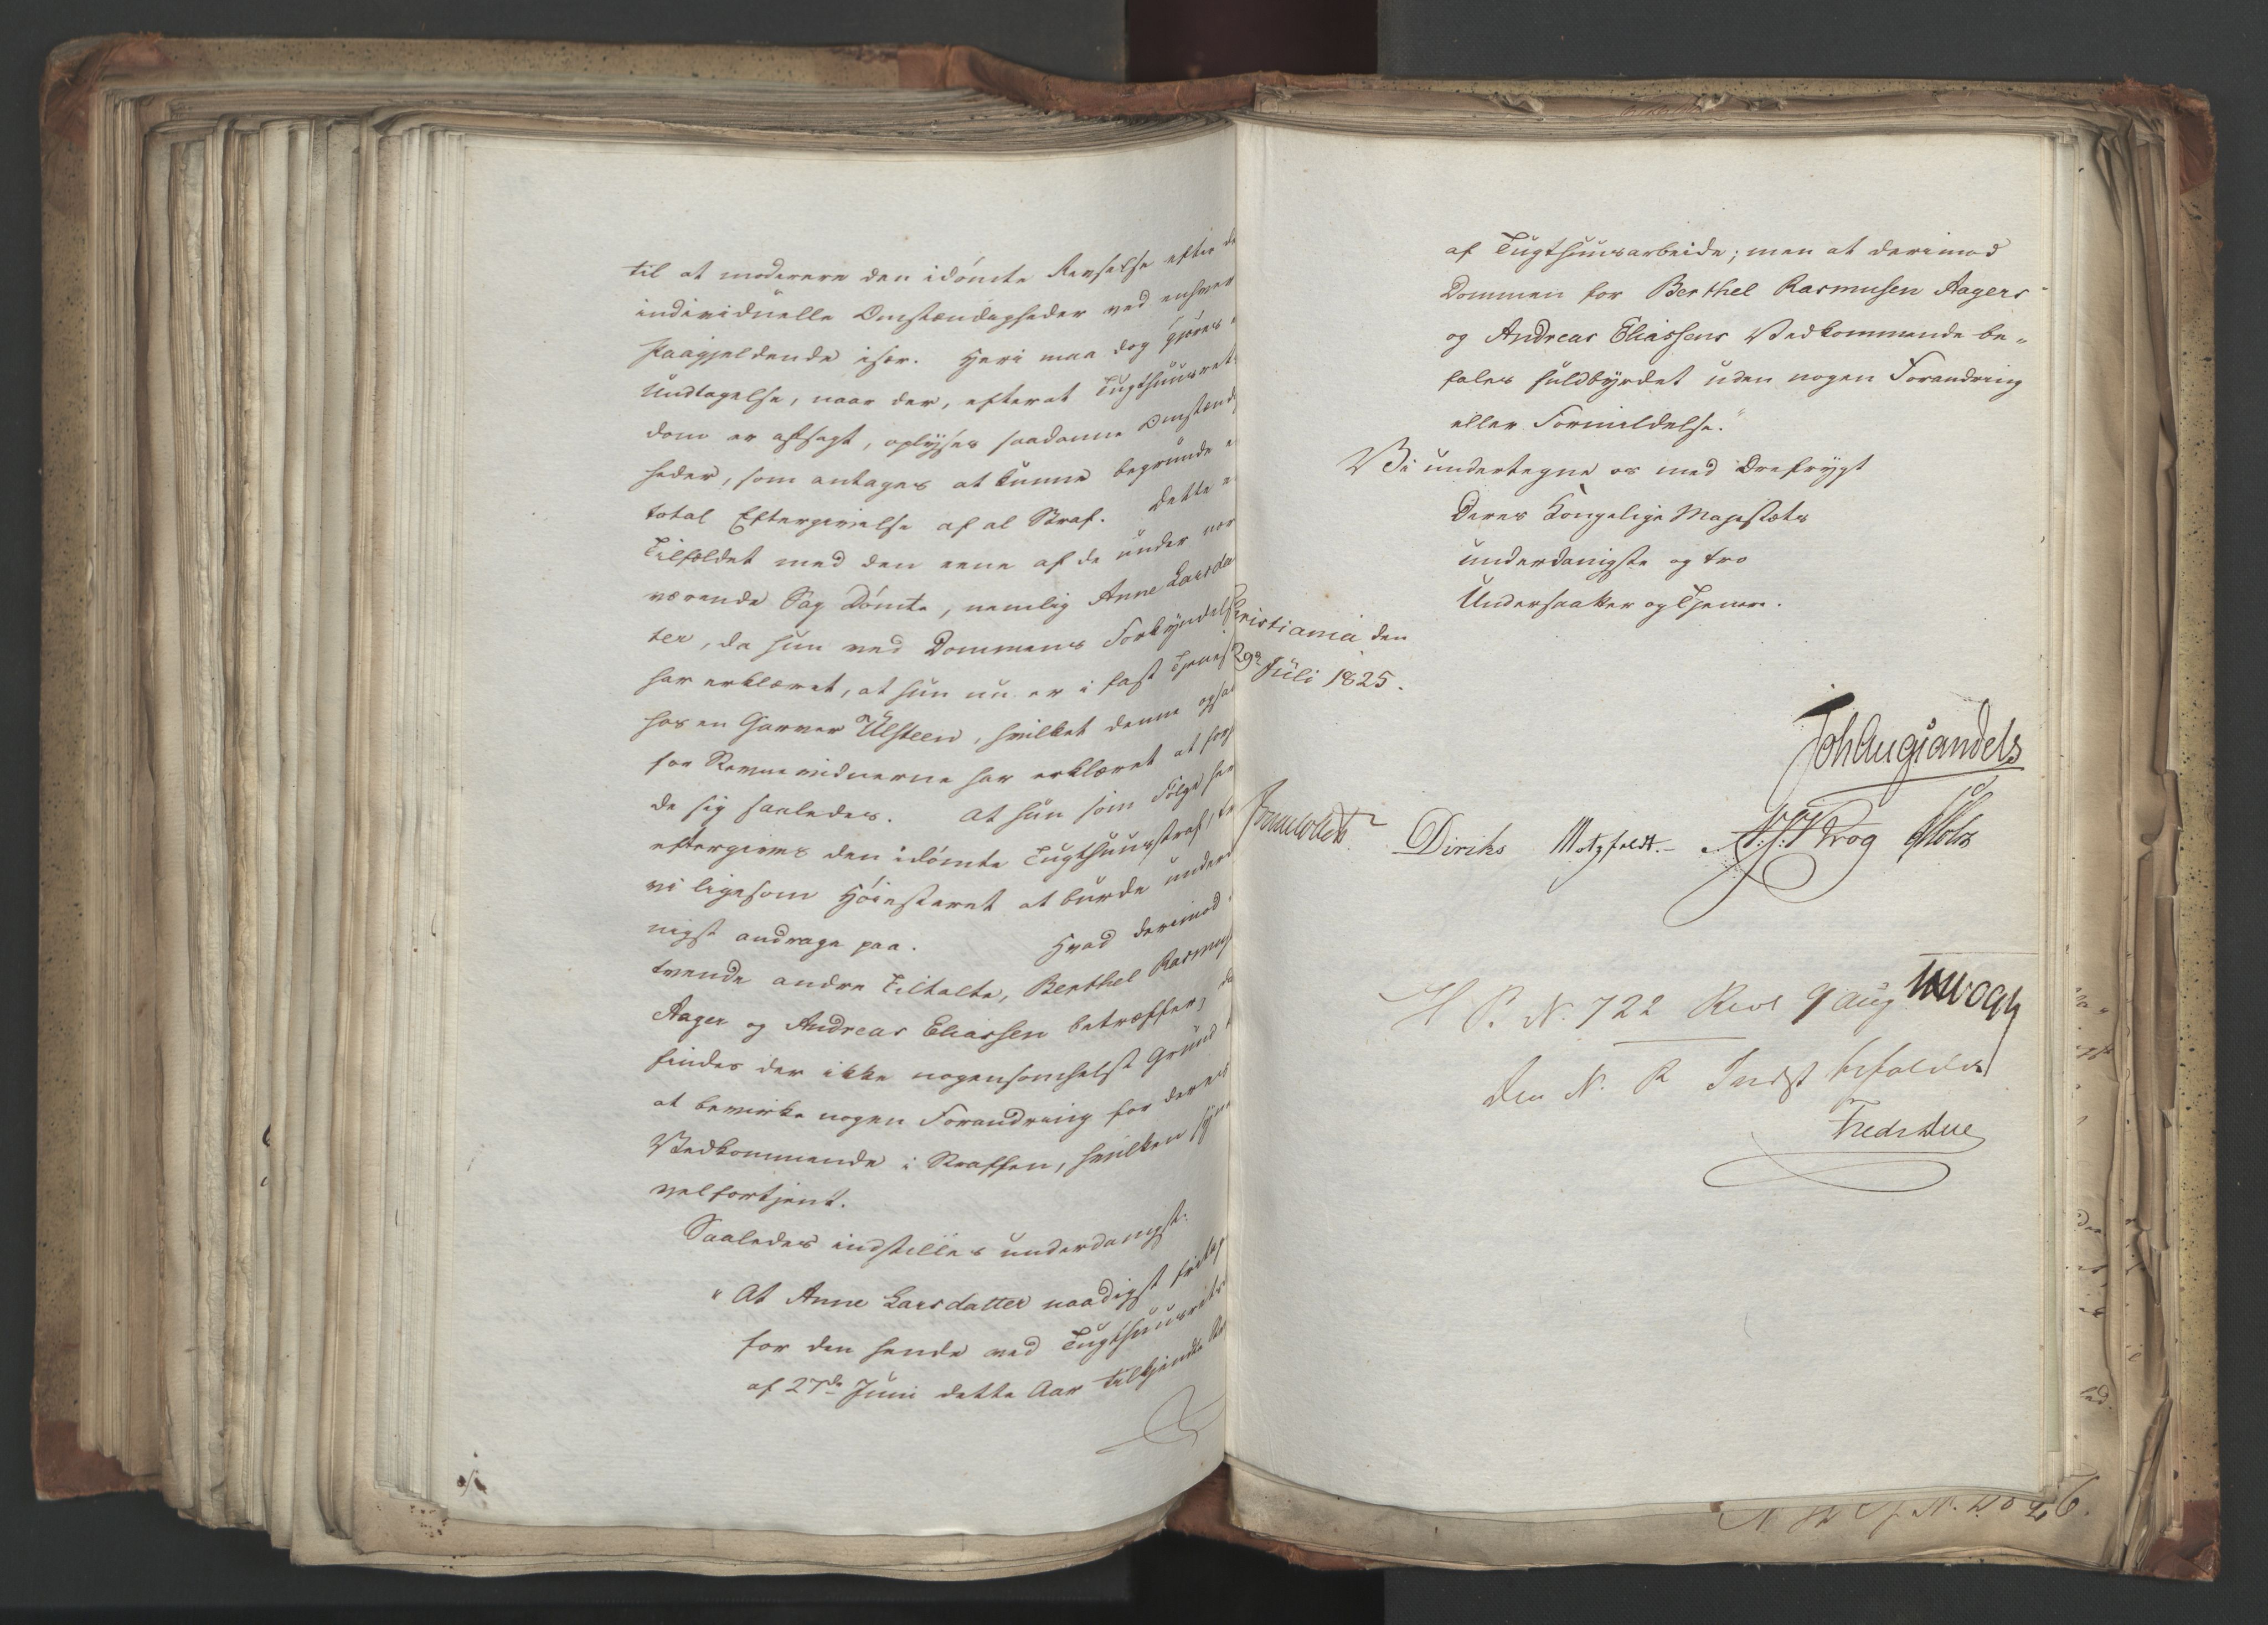 til at moderere den idømte Revselse efter de
individuelle Omstændigheder ved enhver
paagjeldende især. Heri maa dog gjøres
Undtagelse, naar der, efterat Tugthuusret
dom er afsagt, oplyses saadanne Omstændig
heder, som antages at kunne begrunde e
total Eftergivelse af al Straf. Dette e
Tilfældet med den eene af de under nær
værende Sag Dømte, nemlig Anne Larsdat
ter, da hun ved Dommens Forkyndelse
har erklæret, at hun nu er i fast Tjeneste
hos en Garver Ulsteen, hvilket denne ogsaa
for Stevnevidnerne har erklæret at forhol
de sig saaledes. At hun som Følge her
eftergives den idømte Tugthuusstraf, tr
vi ligesom Høiesteret at burde underda
nigst andrage paa. Hvad derimod
tvende andre Tiltalte, Berthel Rasmus
Aager og Andreas Eliassen betræffer, da
findes der ikke nogensomhelst Grund t
at bevirke nogen Forandring for deres
Vedkommende i Straffen, hvilken syne
velfortjent.
Saaledes indstilles underdanigst:
"At Anne Larsdatter naadigst fritag
for den hende ved Tugthuusrets
af 27de Juni dette Aar tilkjendte
af Tugthuusarbeide; men at derimod
Dommen for Berthel Rasmusen Aagers
og Andreas Eliassens Vedkommende be„
fales fuldbyrdet uden nogen Forandring
eller Formildelse."
Vi undertegne os med Ærefrygt
Deres Kongelige Majestæts
underdanigste og tro
Undersaatter og Tjenere.
Christiania den
29de Juli 1825.
Joh Aug Sandels
Sommerhielm Diriks Motzfeldt.- J. H. Krog Holst
JHVogt
H P. N. 722 Resl 9 Aug
den N. R Indst bifaldes
Freds Due
26.